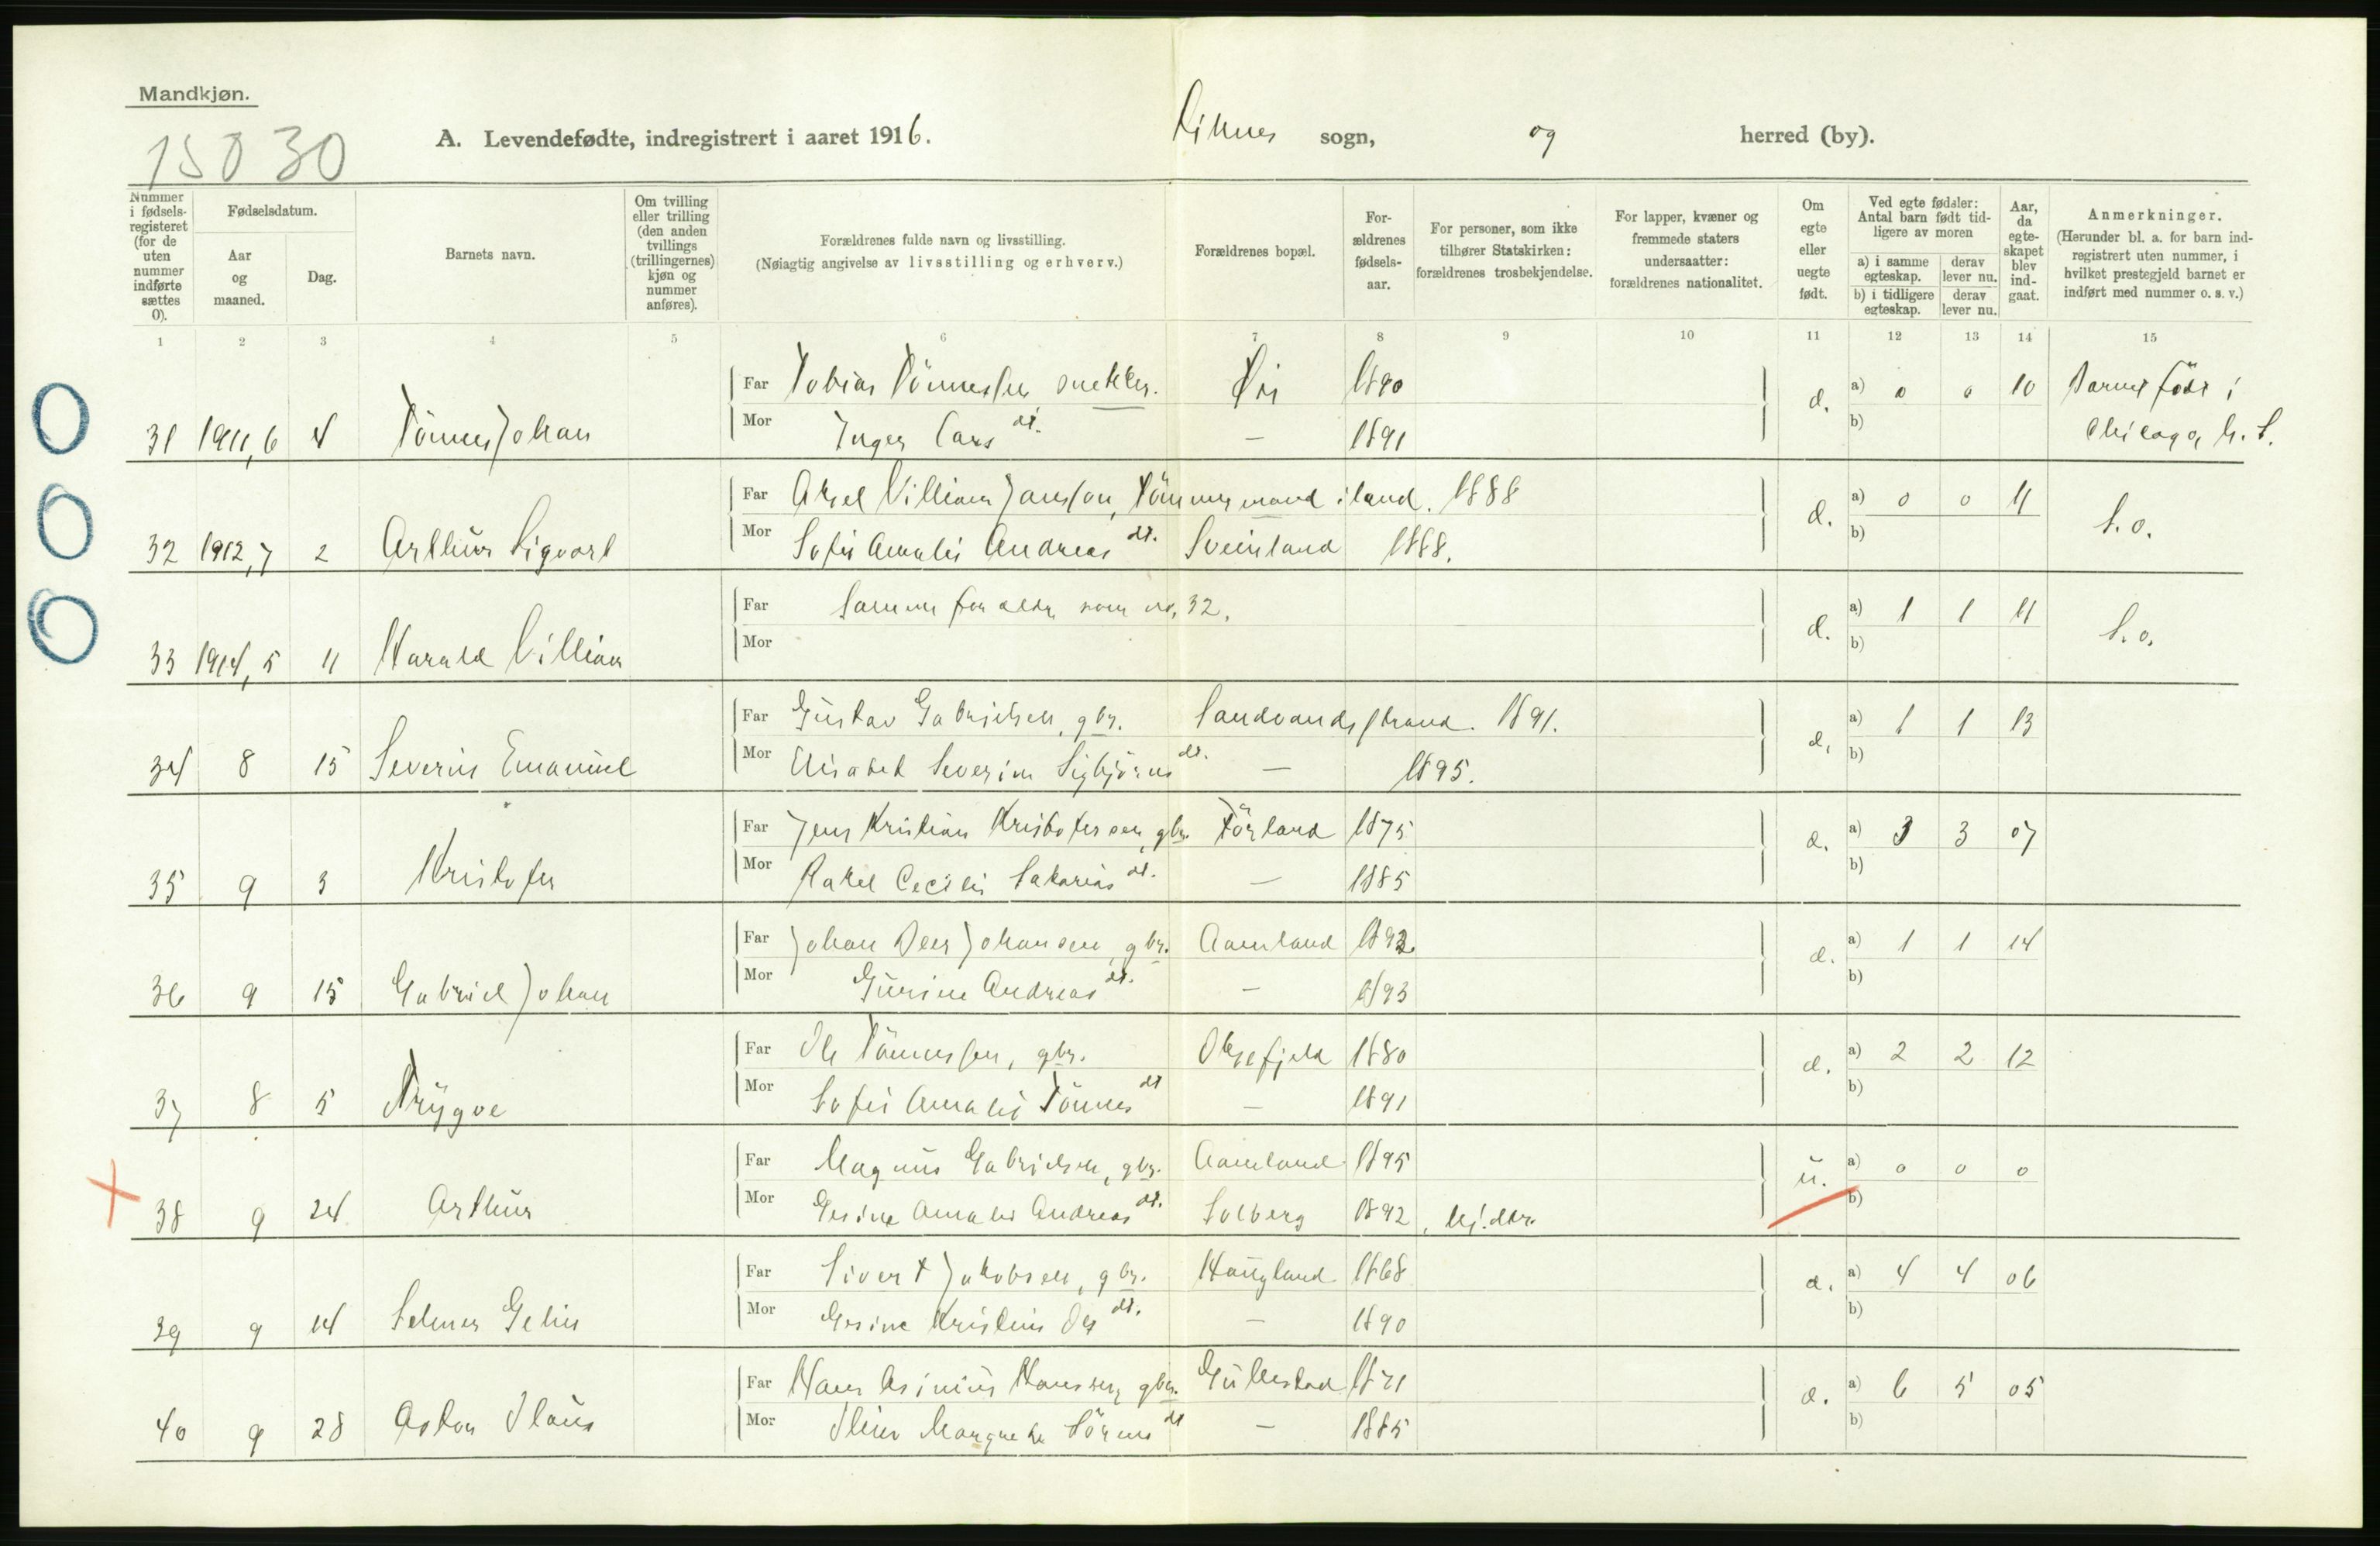 Mandkjøn.
15030
A. Levendefødte, indregistrert i aaret 1916. sogn, og herred (by).
Nummer i fødsels-registeret (for de uten nummer indførte sættes 0).
Fødselsdatum.
Aar og maaned.
Dag.
Barnets navn.
Om tvilling eller trilling (den anden tvillings (trillingernes) kjøn og nummer anføres).
Forældrenes fulde navn og livsstilling.
(Nøiagtig angivelse av livsstilling og erhverv.)
Forældrenes bopæl.
For-ældrenes fødsels-aar.
For personer, som ikke tilhører Statskirken: forældrenes trosbekjendelse.
For lapper, kvæner og fremmede staters undersaatter: forældrenes nationalitet.
Om egte eller uegte født.
Ved egte fødsler: Antal barn født tid-ligere av moren
a) i samme egteskap. derav lever nu.
b) i tidligere egteskap. derav lever nu.
Aar, da egte-skapet blev ind-gaat.
Anmerkninger.
(Herunder bl. a. for barn ind-registrert uten nummer, i hvilket prestegjeld barnet er indført med nummer o. s. v.)
1 2 3 4 5 6 7 8 9 10 11 12 13 14 15
Far Tobias Tönnessen, snekker. 1890 a) 0 0 10 Barnet født i
31 1911, 6 4 Tönnes Johan Mor Inger Lars dt. — 1891 d. b) Chicago,
Far Aksel Villiam Jansson, Tömmermand iland. 1888 a) 0 0 11
32 1912, 7 2 Arthur Sigvart Mor Sofie Amalie Andreas dt. Sveinland 1888. d. b) S. o.
Far Samme foreldre som no. 32. a) 1 1 11
33 1914, 5 11 Harald Villiam Mor d. b) S. o.
Far Gustav Gabrielsen, gbr. Sandvandsstrand. 1891. a) 1 1 13
34 8 15 Severin Emanuel Mor Elisabet Severine Sigbjörns dt. — 1895. d. b)
Far Jens Kristian Kristofersen, gbr. Törland 1875 a) 3 3 07
35 9 3 Kristofer Mor Rakel Cecilie Sakarias dt. — 1885 d. b)
Far Johan Peer Johansen, gbr. Aamland 1892 a) 1 1 14
36 9 15 Gabriel Johan Mor Gurine Andreas dt. — 1893 d. b)
Far Ole Tönnessen, gbr. Oksefjeld 1880 a) 2 2 12
37 8 5 Trygve Mor Sofie Amalie Tönnes dt — 1891 d. b)
Far Magnus Gabrielsen, gbr. Aamland 1895 a) 0 0 0
38 9 24 Arthur Mor Gesine Amalie Andreas dt. Solberg 1892, u. b)
Far Sivert Jakobsen, gbr. Haugland 1868 a) 4 4 06
39 9 14 Selmer Gelin Mor Gesine Kristine Ols dt. — 1890 d. b)
Far Hans Asinius Hanssen, gbr. Gullestad 1871 a) 6 5 05
40 9 28 Mor Margrethe dt — 1885 d. b)